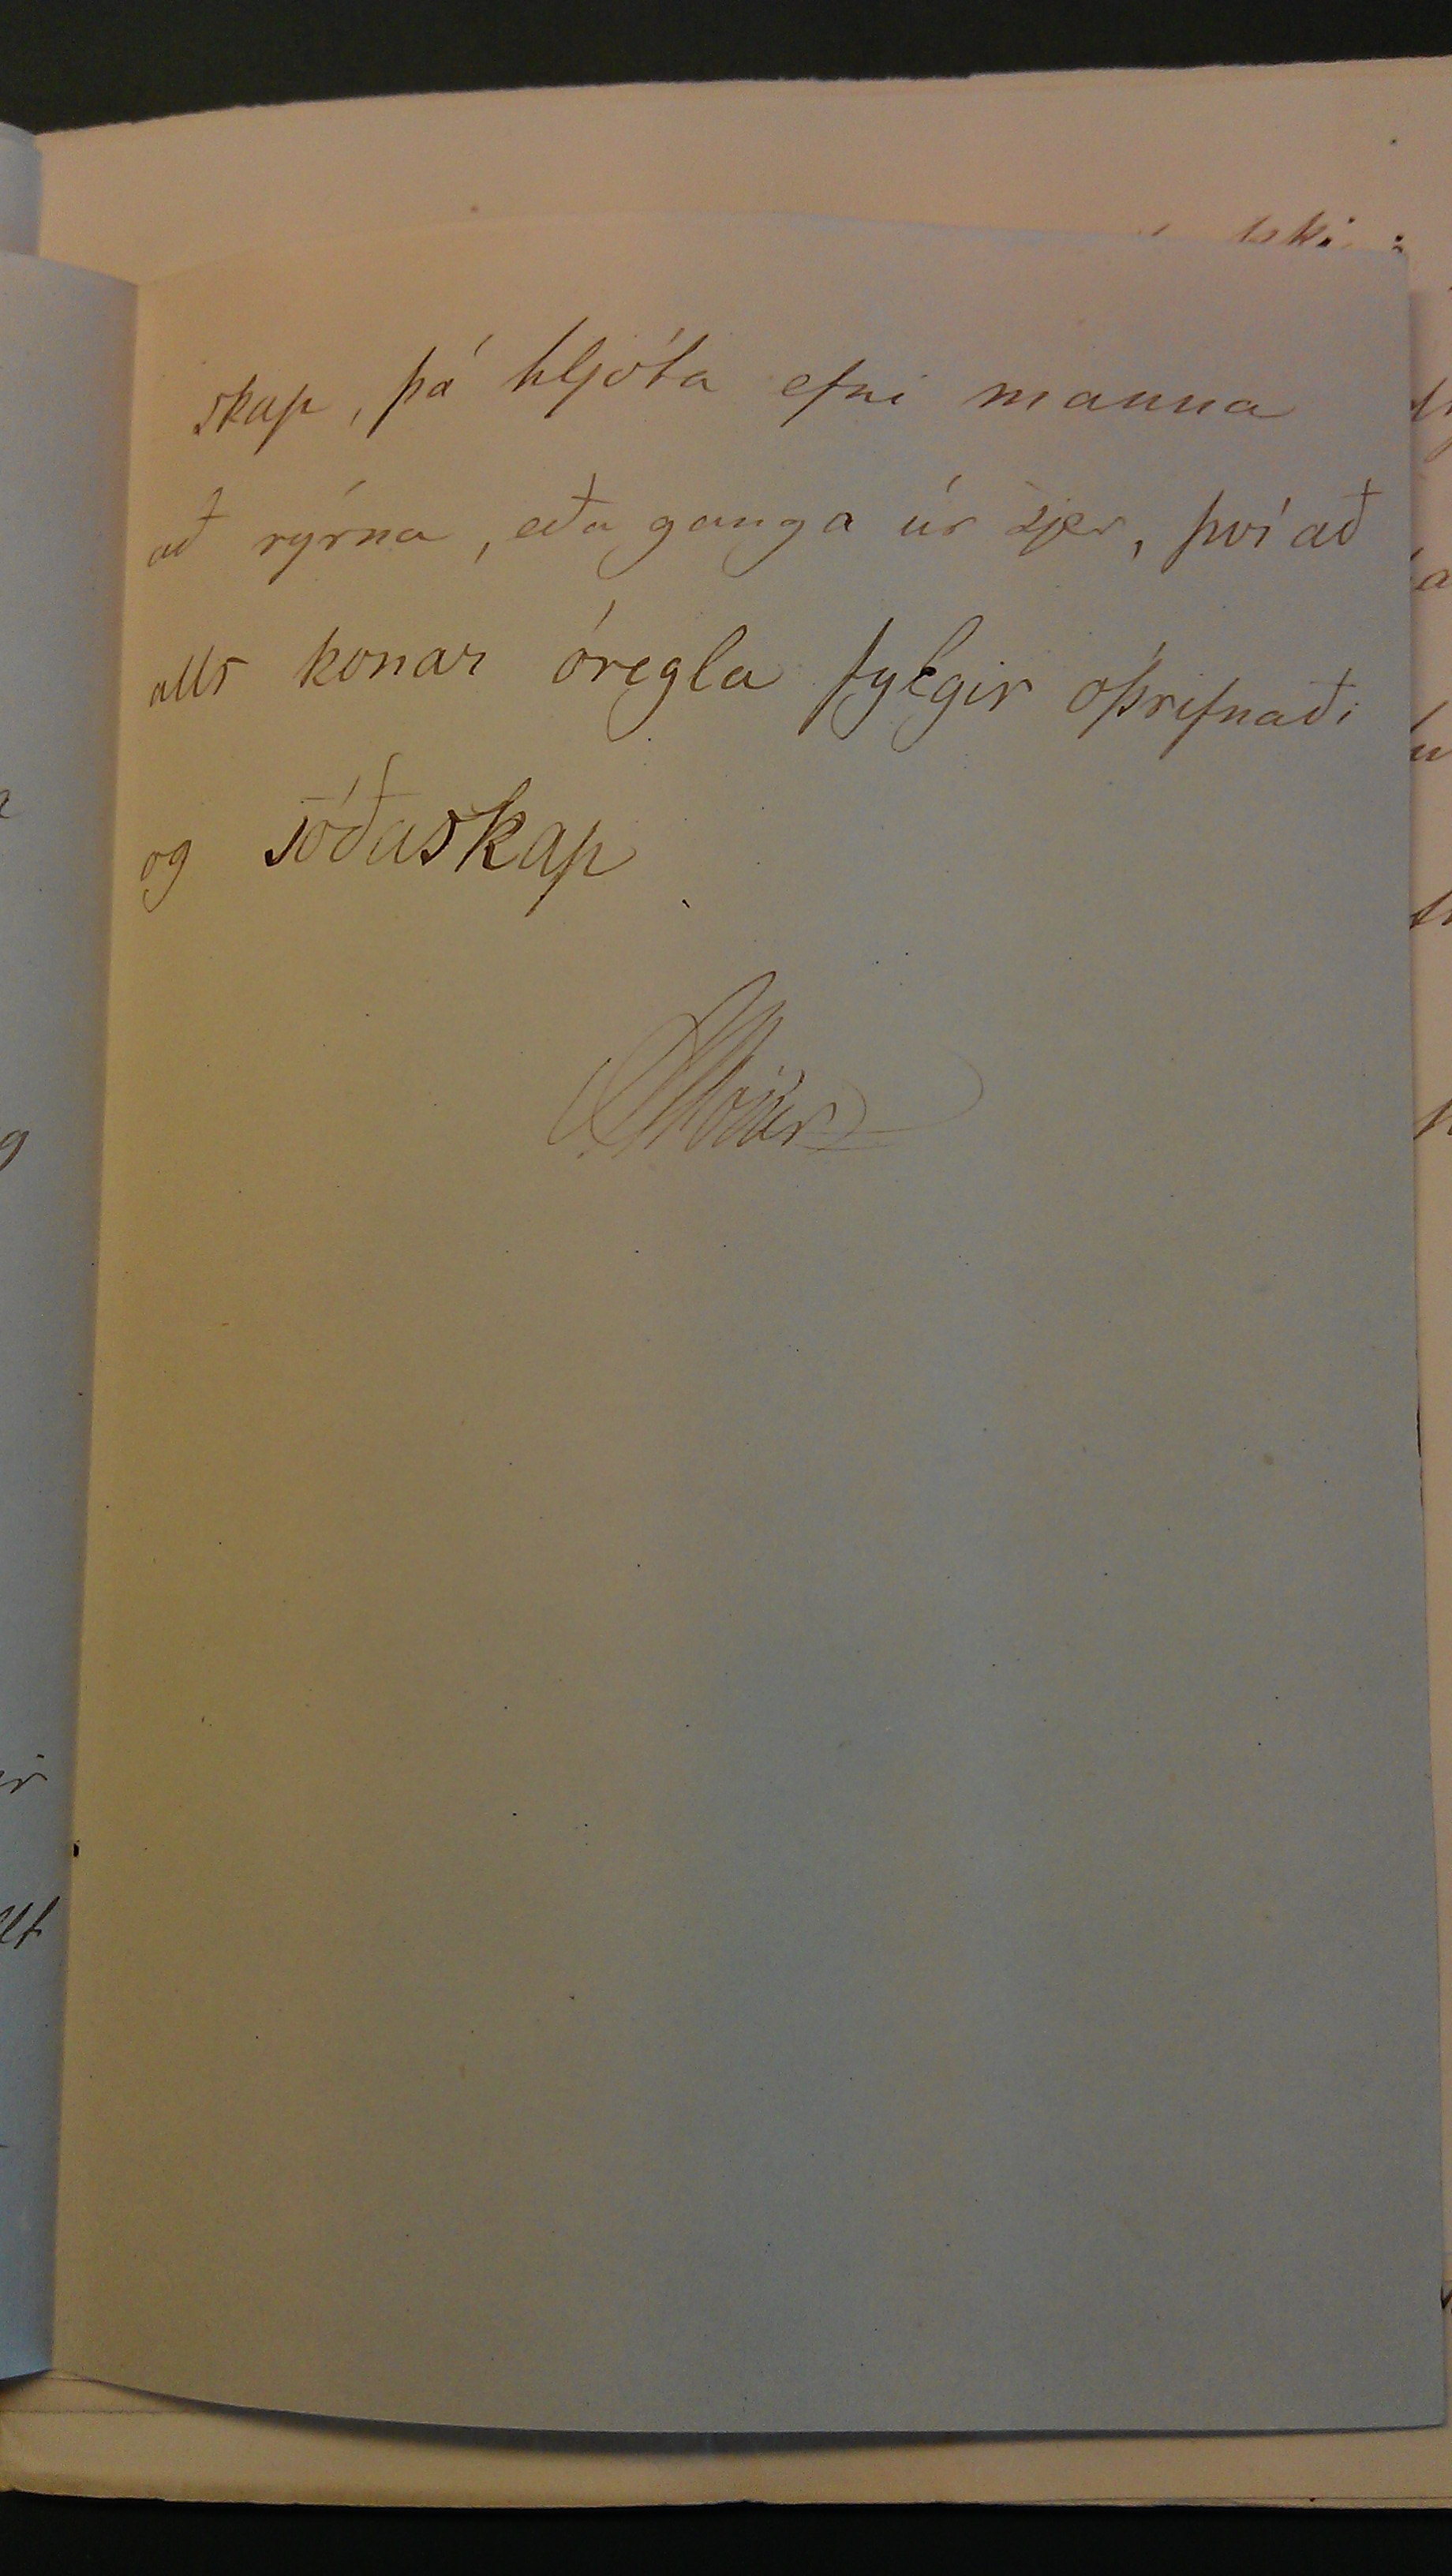 skap, þá hljóta efni manna
að rýrna, eða ganga úr sjer, því að
alls konar óregla fylgir óþrifnaði
og sóðaskap.